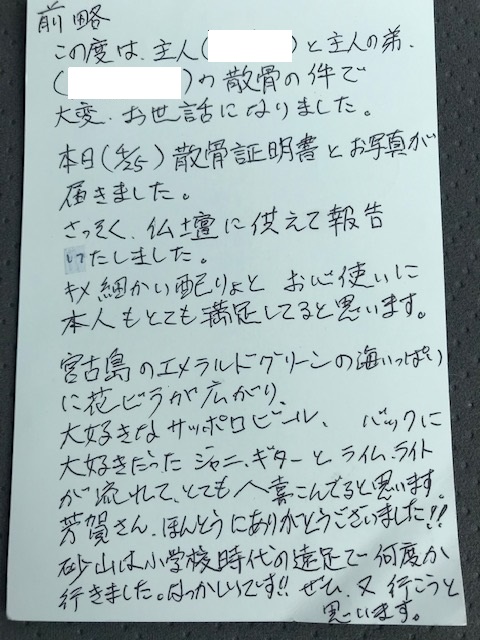 前略
この度は、主人( )と主人の弟、
( )の散骨の件で
大変、お世話になりました。
本日(4/25)散骨証明書とお写真が
届きました。
さっそく、仏壇に供えて報告
いたしました。
キメ細かい配りょと お心使いに
本人もとても満足してると思います。
宮古島のエメラルドグリーンの海いっぱい
に花びらが広がり、
大好きなサッポロビール、 バックに
大好きだった ジャニ、ギター と ライム、ライト
が流れて、とても 喜こんでると思います。
芳賀さん、ほんとうにありがとうございました!!
砂山は小学校時代の遠足で 何度か
行きました。なつかしいです!! ぜひ、又 行こうと
思います。